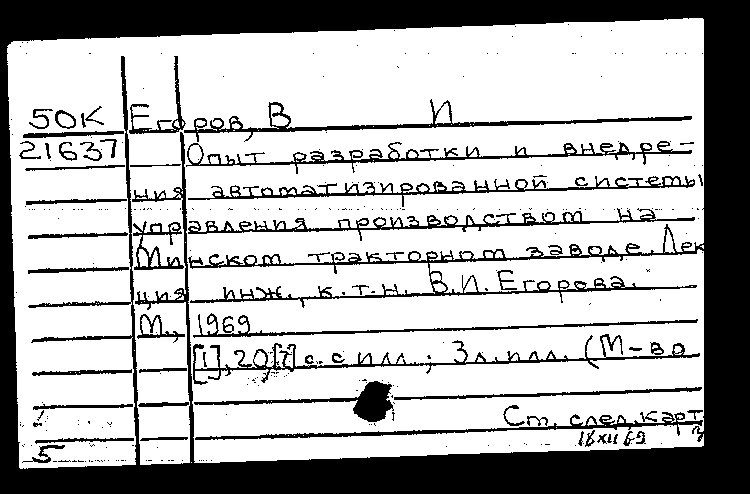 50К Егоров, В И
21637 Опыт разработки и внедре-
ния автоматизированной системы
управления производством на
Минском тракторном заводе. Лек
ция инж., к.т.н. В.И. Егорова.
М., 1969.
[1], 20, [1] с. с илл.; 3 л. илл. (М-во
Ст. след. карт
18 XII 69
5